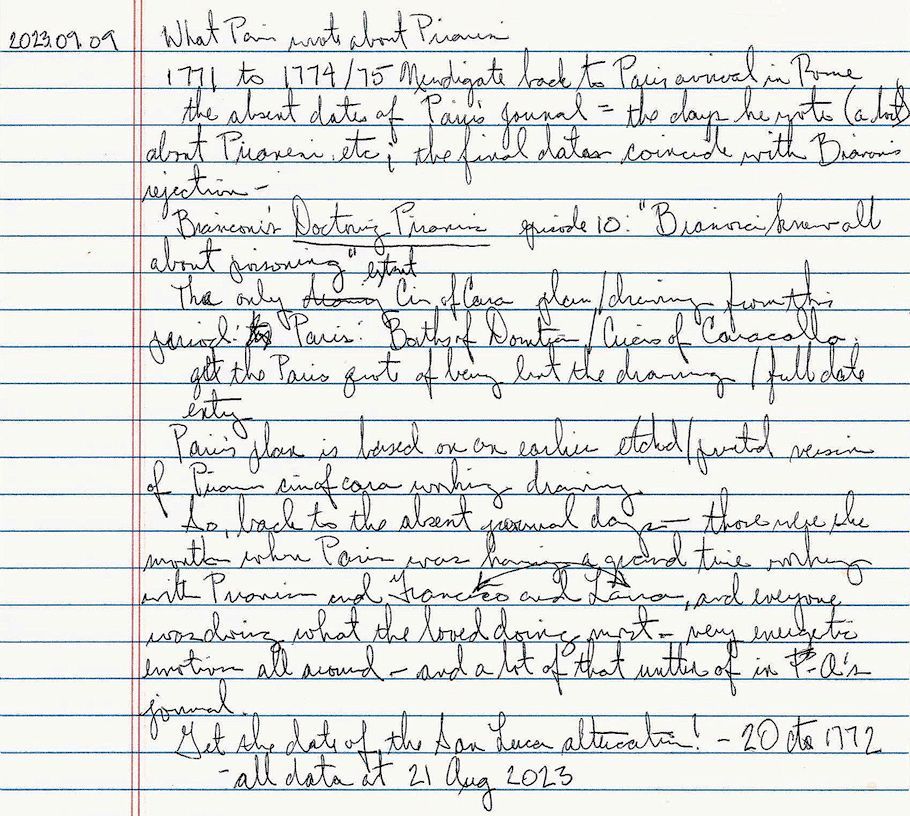 2023.09.09 What Paris wrote about Piranesi
1771 to 1774/75 back to Paris arrival in Rome
the absent dates of Paris's journal = the days he wrote (a lot)
about Piranesi, etc; the final dates coincide with
rejection -
Bianconi's Doctoring Piranesi episode 10: "Bianconi knew all
about poisoning"
The only extant Circ of Cara plan/drawing from this
period: Paris: Baths of Domitian / Circus of Caracalla.
get the Paris quote of being lent the drawing / full date
entry
Paris's plan is based on an earlier etched/printed version
of Piran circ of cara working drawing.
So, back to the absent journal days - those were the
months when Paris was having a grand time working
with Piranesi and Francesco and Laura, and everyone
was doing what they loved doing most - very energetic
emotion all around - and a lot of that written of in P-A's
journal.
Get the date of the San Luca altercation! - 20 1772
- all data at 21 Aug 2023